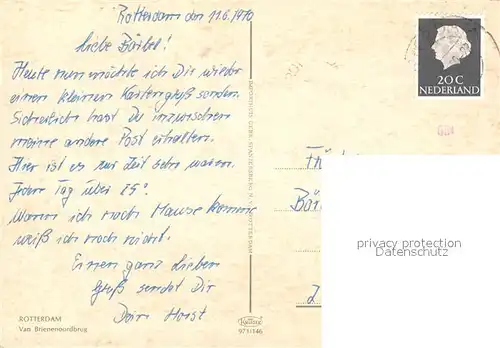 Rotterdam den 11.6.1970
Liebe Bärbel!
Heute nun möchte ich Dir wieder
einen kleinen Kartengruß senden.
Sicherlich hast Du inzwischen
meine andere Post erhalten.
Hier ist es zur Zeit sehr warm.
Jeden Tag über 25°
Wann ich nach Hause komme
weiß ich noch nicht.
Einen ganz lieben
Gruß sendet Dir
Dein Horst
ROTTERDAM
Van Brienenoordbrug
971/146
20 C
NEDERLAND
privacy protection
Datenschutz